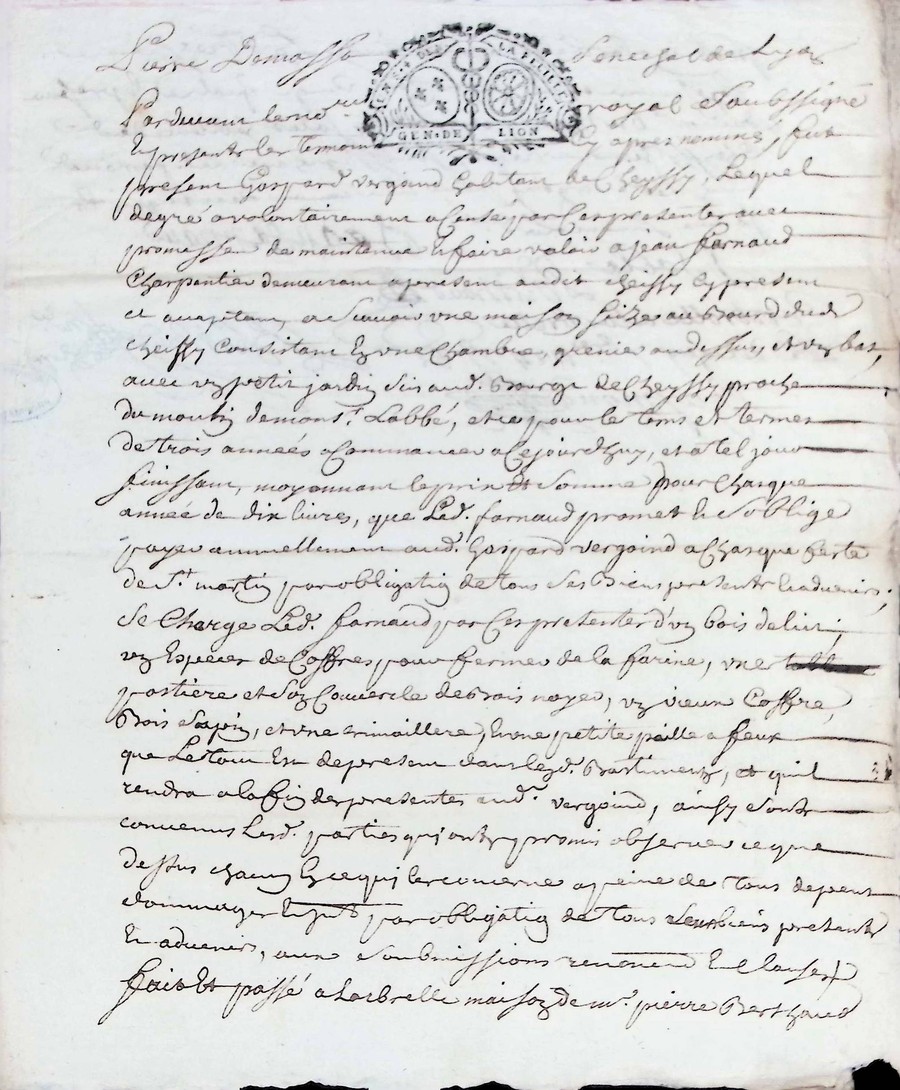 Pierre Demasso Senechal de Lyon
GEN·DE LION
Pardevant le no.re royal Soubssigné
Et presents les temoins cy apres nommés, fut
present Gaspard vergoind habitant de Cheyssy, Lequel
de gré a volontairement acensé par Ces presentes avec
promesse de maintenue et faire valoir a jean farnaud
Charpentier demeurant a present audit cheissy cy present
et acceptant, a Scavoir une maison Scize au Bourd dud.
cheissy Consistant En une Chambre, grenie au dessus, et un bas,
avec un petit jardin Scis aud. Bourge de Cheyssy proche
du moulin de mons.r Labbé, et ce pour le tems et termes
de trois années a Commancer a Cejourdhuy, et a tel jour
finissant, moyonnant le prix et Somme pour Chaque
année de dix livres, que Led. farnaud promet et S'oblige
payer annuellement aud. Gaspard vergoind a Chasque feste
de S.t martin par obligation de tous Ses Biens presents et advenirs,
Se Charge Led. farnaud par Ces presentes d'un bois de lict,
un Especes de Coffres pour fermer de la farine, une
pastiere et Son Couvercle de Bois noyer, un vieux Coffre,
Bois Sapin, et une crimaillere, Et une petite paille a feux
que Le tout Est de present dans led. Bastiments, et quil
rendra a la fin des presentes aud. vergoind, ainsy Sont
convenus Lesd. parties qui ont promis observer ce que
dessus chacun En ce qui les concerne a peine de tous depens
dommages Et par obligation de tous Leurs biens presents
Et advenirs, aux Soubmissions renonc.on Et clauses
fait Et passé a Larbrelle maison de m.r pierre Berthaud